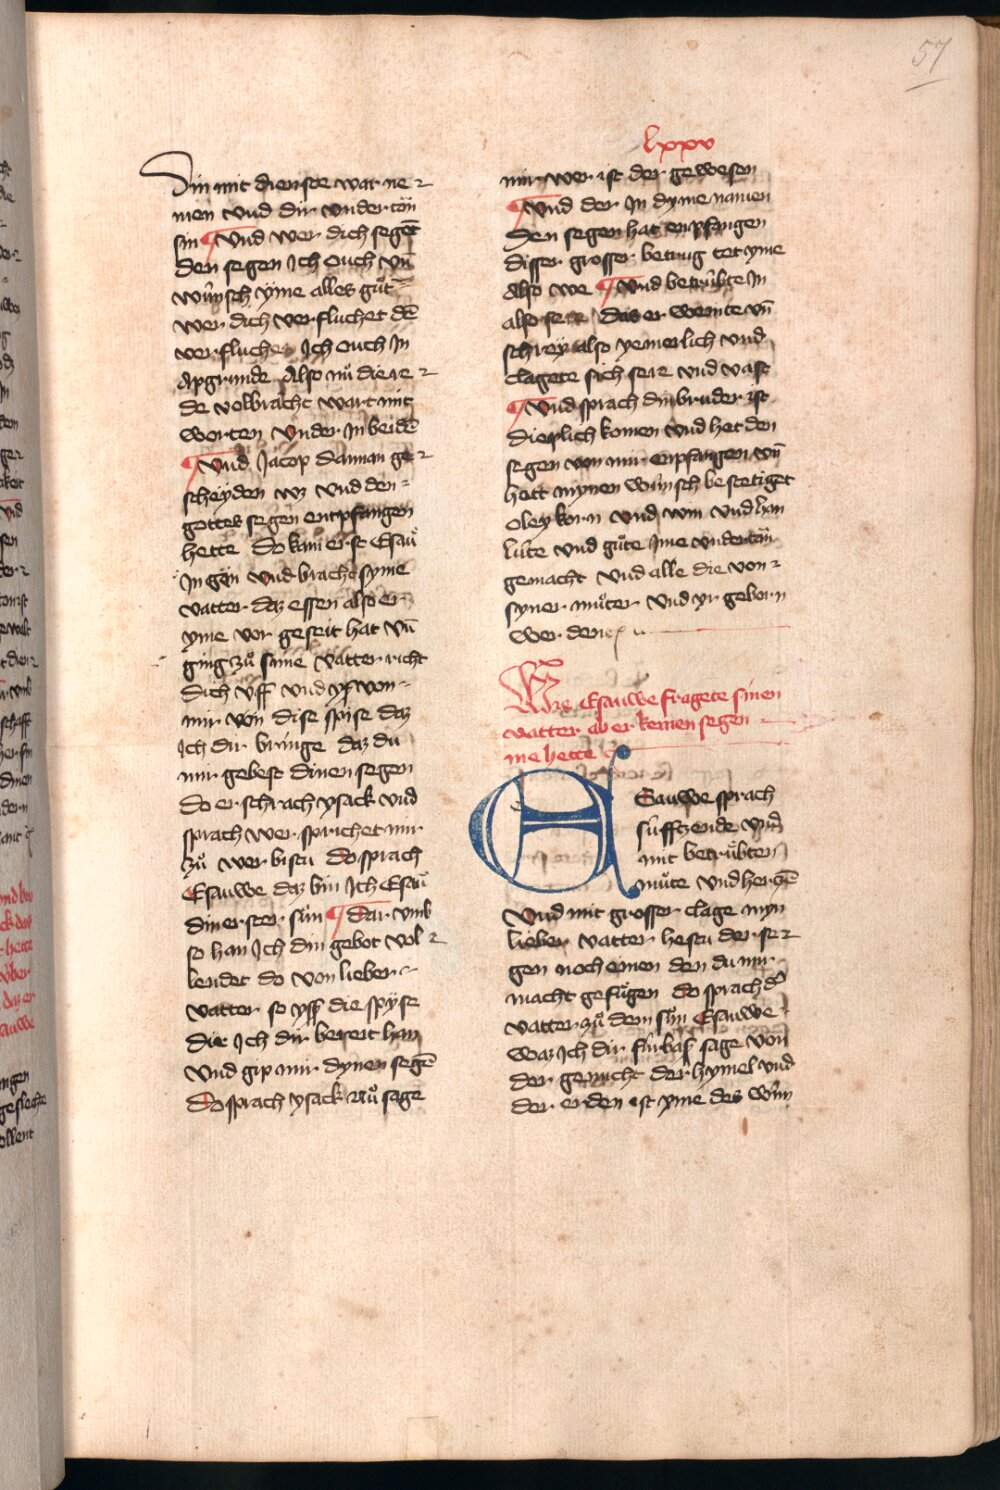 57
lxxv
Din mit dienste war ne
men vnd dir vndertan
sin Vnd wer dich segēt
den segen Ich ouch vn̄
wünsch yme alles gůt
wer dich verfluchet dē
verfluche Ich ouch In
Apgrunde Also nů die re
de volbracht wart mit
worten vnder In beidē
Vnd Jacop dannan ge
scheyden wz vnd den
gottes segen entpfangen
hette Do kam erst Esaů
In gen vnd bracht syme
vatter daz essen also er
yme vor geseit hat vn̄
ging zů sime vatter richt
dich vff vnd ysz von
mir von dise spise daz
Ich dir bringe daz du
mir gebest dinen segen
do erschrach ysack vnd
sprach wer sprichet mir
zů wer bistu do sprach
Esauwe daz bin Ich Esaů
din erster sůn Dar vmb
so han Ich din gebot vol
lendet do von lieber
vatter so ysz die spÿse
die Ich dir bereit han
vnd gip mir dynen segē
Do sprach ysack nů sage
mir wer ist der gewesen
Vnd der In dyme namen
den segen hat enpfangen
disser grosser betrug tet yme
Also we Vnd betrůbte In
also sere das er weinte vn̄
schrey also yemerlich vnd
clagete sich sere vnd vast
Vnd sprach din bruder ist
dieplich komen vnd het den
segen von mir enpfangen vn̄
hett mynen wünsch bestetiget
Oley korn vnd win vnd han
lüte vnd gůte Ime vndertan
gemacht vnd alle die von
syner můter vnd yr geborn
werdene
Wie Esauwe fragete sinen
vatter ob er keinen segen
me hette
Esauwe sprach
süfftzende vnd
mit betrůbten
můte vnd hertzē
Vnd mit grosser clage myn
lieber vatter hestu der se
gen noch einen den du mir
macht gefůgen do sprach d̕
vatter zů dem sůn Esauwe
waz Ich dir fürbasz sage von
der genucht der hymel vnd
der erden ist yme des wün